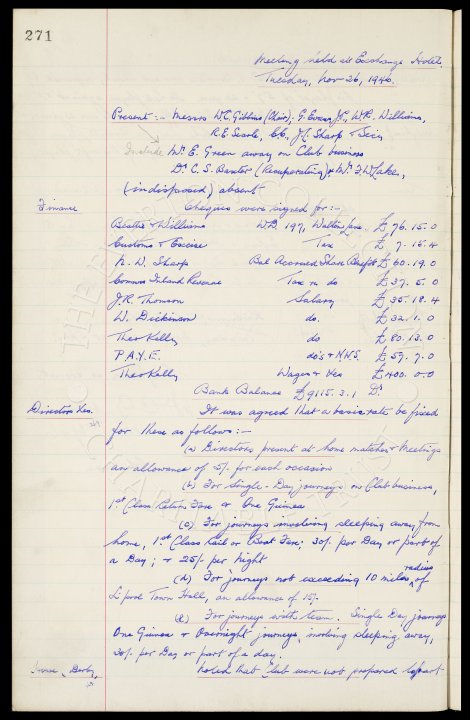 271
Meeting held at Exchange Hotel,
Tuesday, Nov 26, 1946.
Present :- Messrs W.C. Gibbins (Chair), G. Evans J.P., W.R. Williams,
R.E. Searle, J.C. Sharp & Secy
Include Mr E. Green away on Club business
Dr C.S. Baxter (Recuperating) & Mr F.W. Lake,
(indisposed) absent
Finance
Cheques were signed for :-
Beattie & Williams W.D. 197, Walton £76. 15. 0
Customs & Excise Tax £ 7. 16. 4
N. W. Sharp Bal Accrued Share Benefit £60. 19. 0
Comms Inland Revenue Tax on do £37. 5. 0
J.R. Thomson Salary £35. 18. 4
W. Dickinson do. £32. 1. 0
Theo Kelly do £80. 13. 0
P.A.Y.E. do's & N.H.S. £59. 7. 0
Theo Kelly Wages & Xes £400. 0. 0
Bank Balance £9115. 3. 1 Dr
Directors Xes.
It was agreed that a basis rate be fixed
for these as follows :-
(a) Directors present at home matches & Meetings
an allowance of 5/- for each occasion
(b) For Single - Day journeys on Club business,
1st Class Return Fare & One Guinea
(c) For journeys involving sleeping away from
home, 1st Class Rail or Boat Fare; 30/- per Day or part of
a Day; & 25/- per night
(d) For journeys not exceeding 10 miles radius of
L'pool Town Hall, an allowance of 15/-
(e) For journeys with team. Single Day journeys
One Guinea & Overnight journeys, involving sleeping away,
30/- per Day or part of a day.
Derby,
Noted that Club were not prepared to part